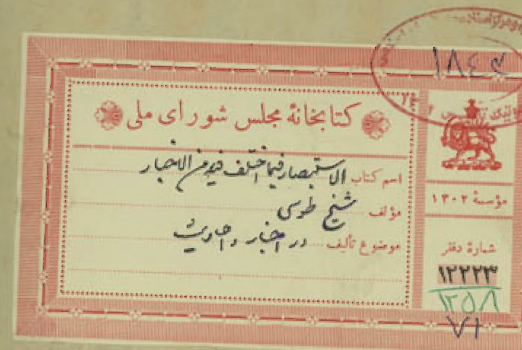 ۱۸۴۳
کتابخانهٔ مجلس شورای ملی
اسم کتاب الاستبصار فیما اختلف فیه من الاخبار
مؤلف شیخ طوسی
موضوع تألیف در اخبار و احادیث
مؤسسهٔ ۱۳۰۲
شمارهٔ دفتر
۱۲۲۲۳
۱۲۵۸
۷۱